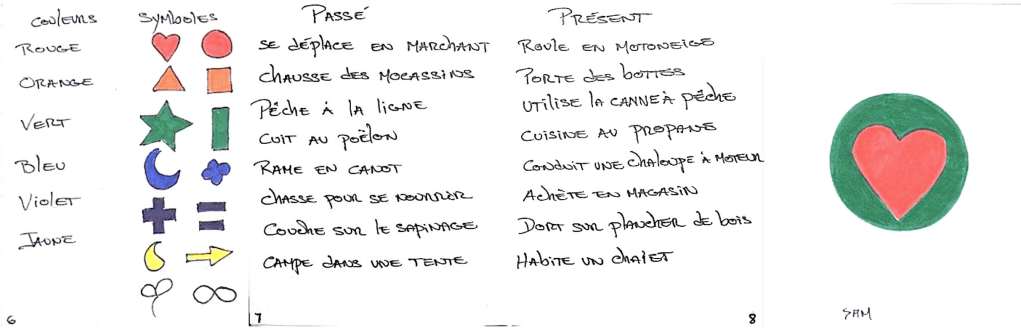 Couleurs
Rouge
Orange
Vert
Bleu
Violet
Jaune
Symboles
6
Passé
Se déplace en marchant
Chausse des mocassins
Pêche à la ligne
Cuit au poëlon
Rame en canot
Chasse pour se nourrir
Couche sur le sapinage
Campe dans une tente
7
Présent
Roule en motoneige
Porte des bottes
Utilise la canne à pêche
Cuisine au propane
Conduit une chaloupe à moteur
Achète en magasin
Dort sur plancher de bois
Habite un chalet
8
Sam